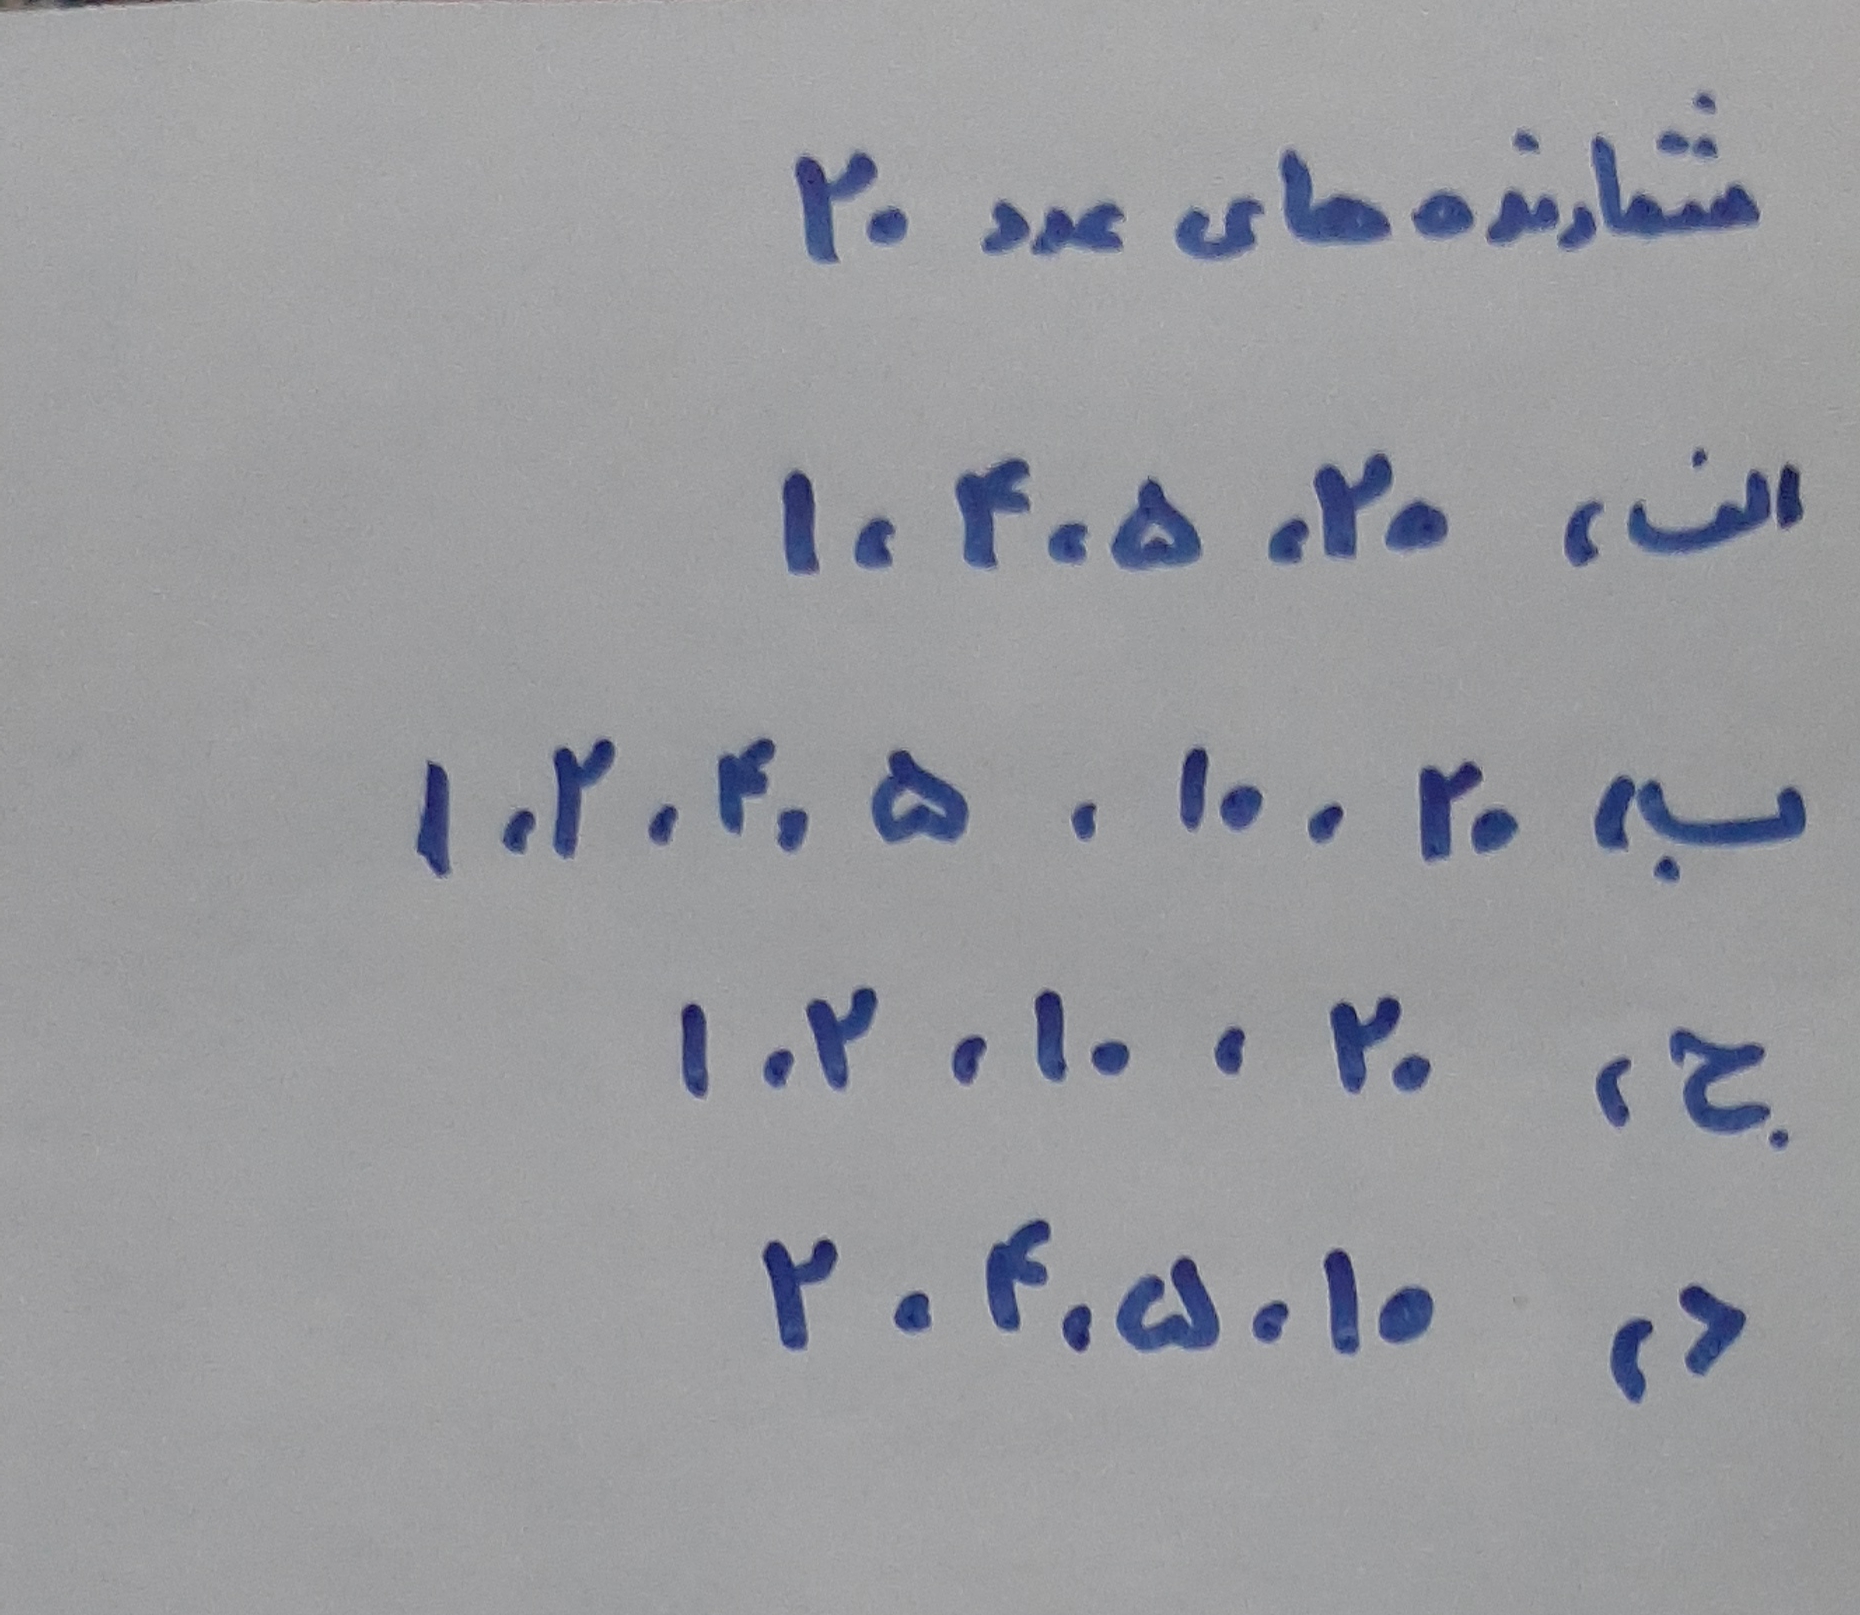 شمارنده های عدد ۲۰
الف، ۱، ۴، ۵، ۲۰
ب، ۱، ۲، ۴، ۵، ۱۰، ۲۰
ج، ۱، ۲، ۱۰، ۲۰
د، ۲، ۴، ۵، ۱۰